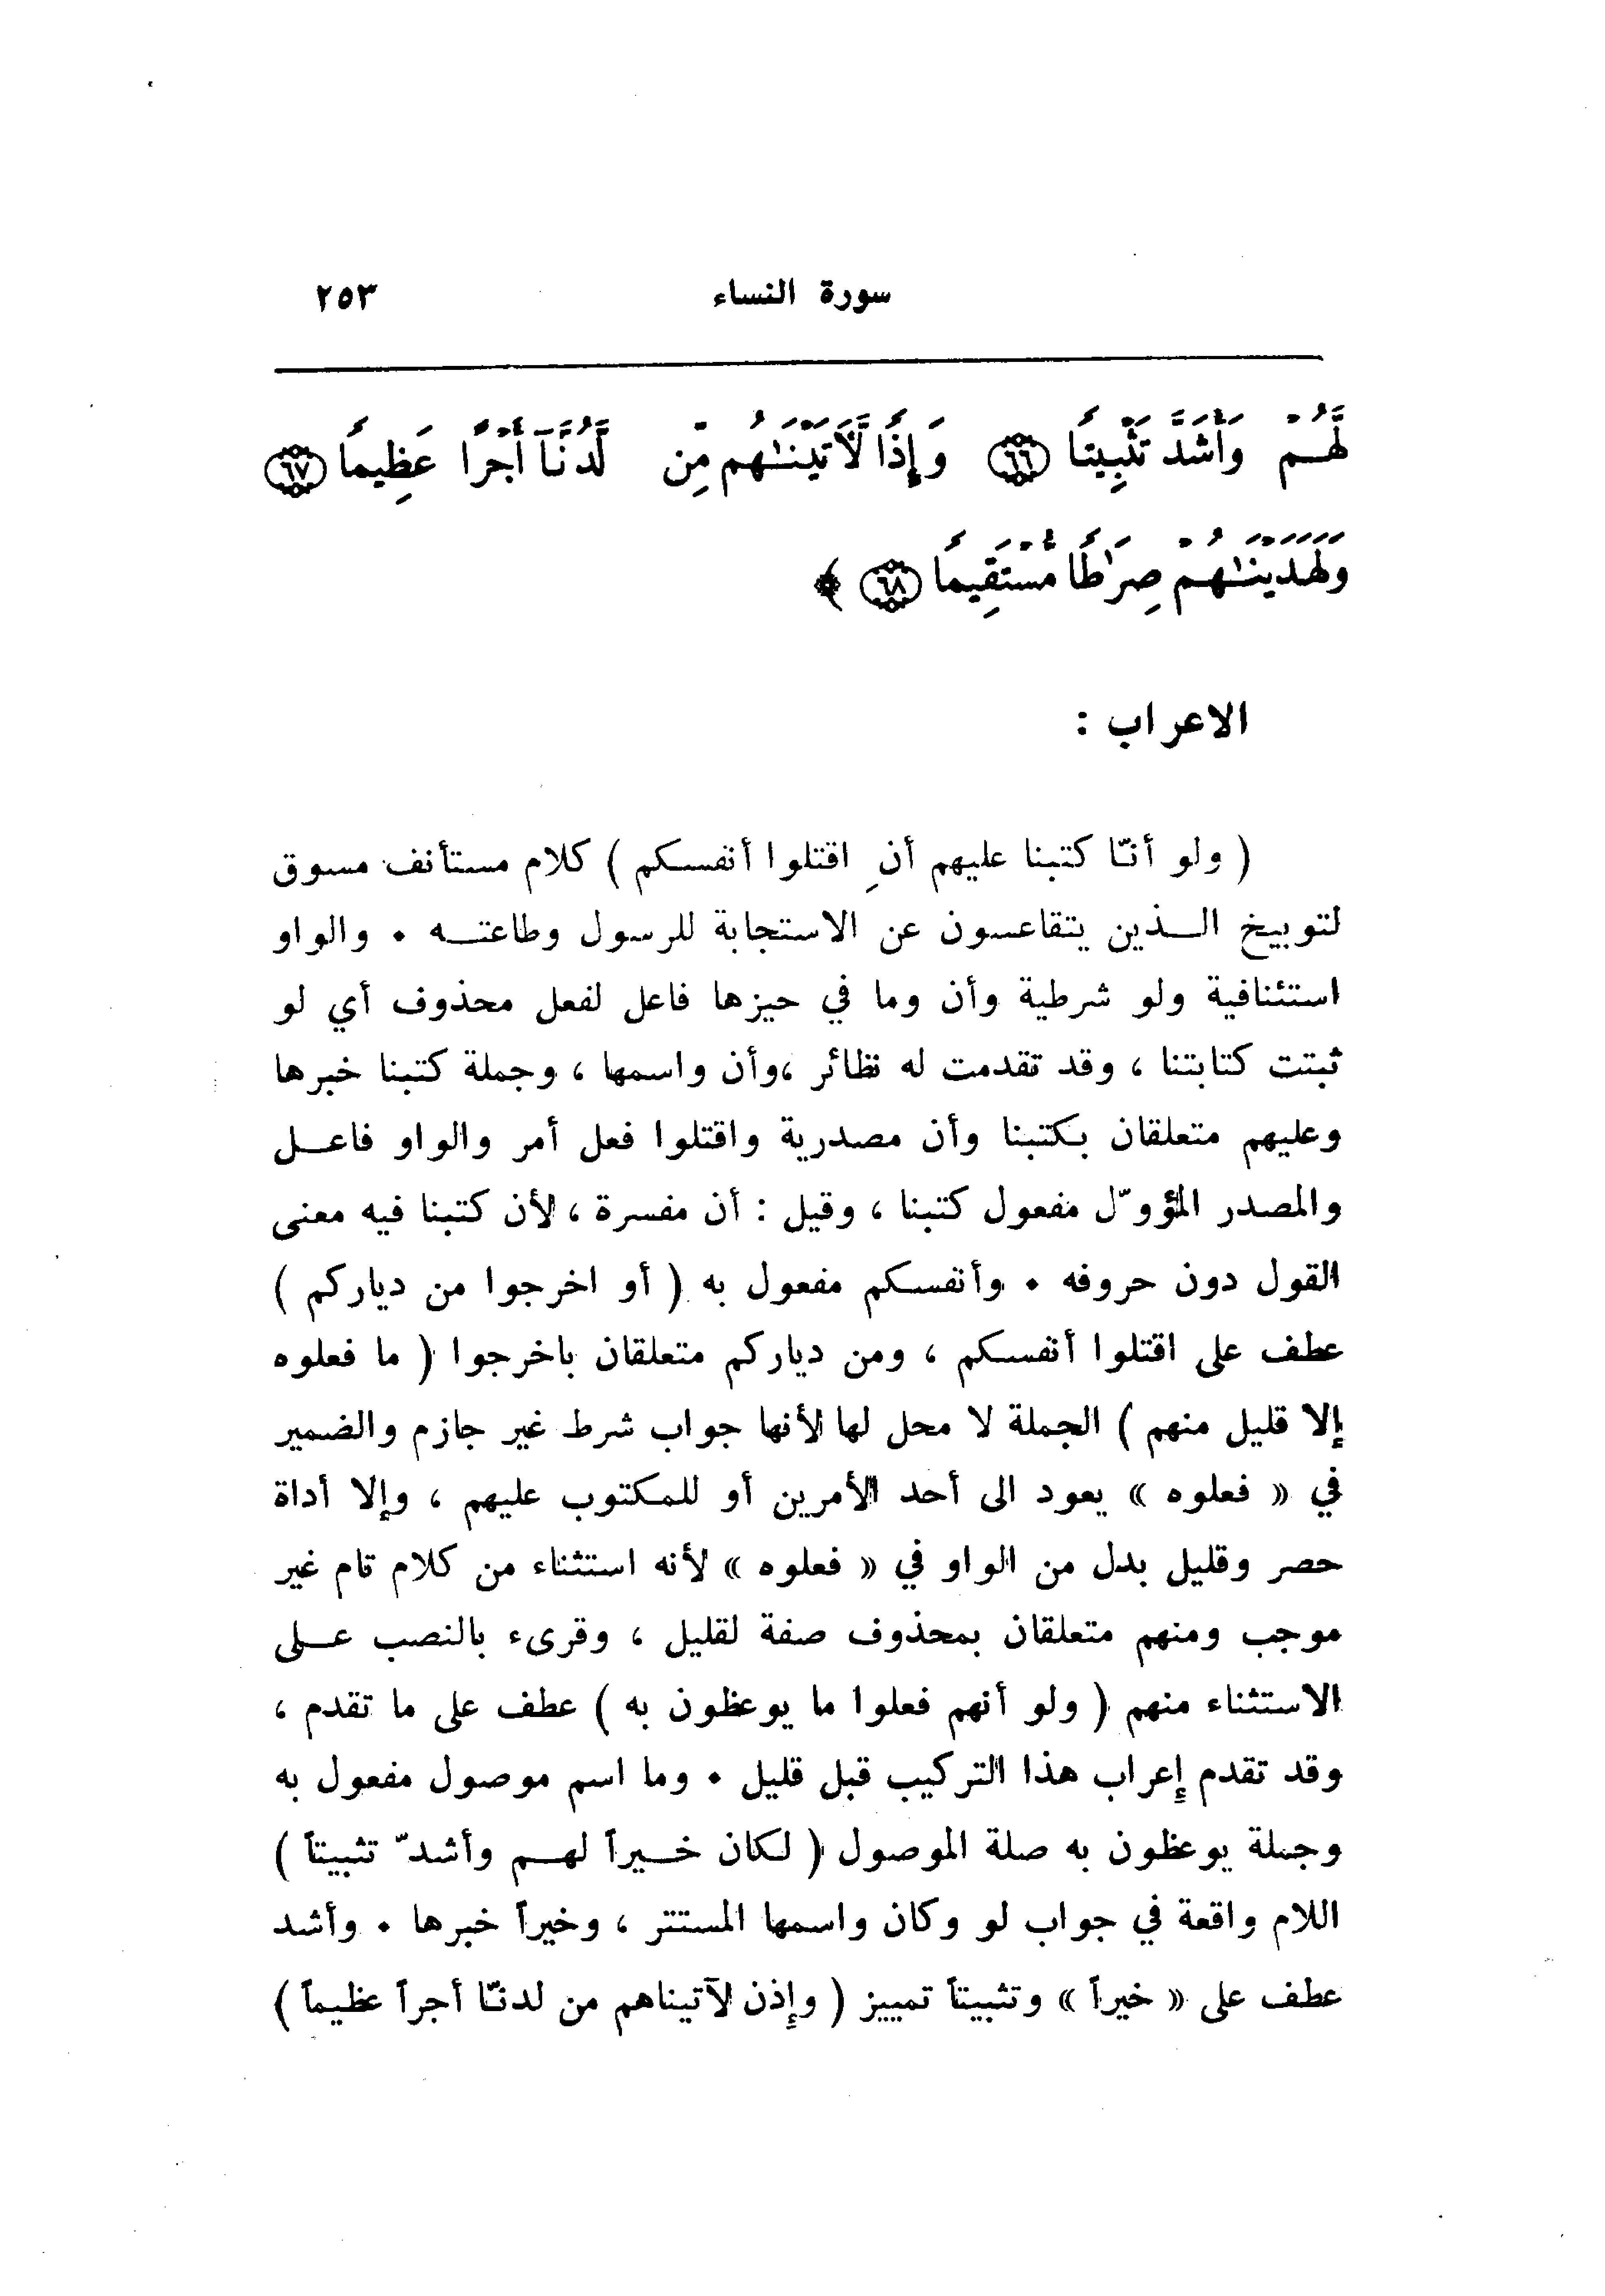 سورة النساء ٢٥٣
لَّهُمْ وَأَشَدَّ تَثْبِيتًا ٦٦ وَإِذًا لَّآتَيْنَٰهُم مِّن لَّدُنَّآ أَجْرًا عَظِيمًا ٦٧
وَلَهَدَيْنَٰهُمْ صِرَٰطًا مُّسْتَقِيمًا ٦٨ ﴾
الاعراب :
( ولو أنّا كتبنا عليهم أنِ اقتلوا أنفسكم ) كلام مستأنف مسوق
لتوبيخ الذين يتقاعسون عن الاستجابة للرسول وطاعته . والواو
استئنافية ولو شرطية وأن وما في حيزها فاعل لفعل محذوف أي لو
ثبتت كتابتنا ، وقد تقدمت له نظائر ،وأن واسمها ، وجملة كتبنا خبرها
وعليهم متعلقان بكتبنا وأن مصدرية واقتلوا فعل أمر والواو فاعل
والمصدر المؤوّل مفعول كتبنا ، وقيل : أن مفسرة ، لأن كتبنا فيه معنى
القول دون حروفه . وأنفسكم مفعول به ( أو اخرجوا من دياركم )
عطف على اقتلوا أنفسكم ، ومن دياركم متعلقان باخرجوا ( ما فعلوه
إلا قليل منهم ) الجملة لا محل لها لأنها جواب شرط غير جازم والضمير
في « فعلوه » يعود الى أحد الأمرين أو للمكتوب عليهم ، وإلا أداة
حصر وقليل بدل من الواو في « فعلوه » لأنه استثناء من كلام تام غير
موجب ومنهم متعلقان بمحذوف صفة لقليل ، وقرىء بالنصب على
الاستثناء منهم ( ولو أنهم فعلوا ما يوعظون به ) عطف على ما تقدم ،
وقد تقدم إعراب هذا التركيب قبل قليل . وما اسم موصول مفعول به
وجملة يوعظون به صلة الموصول ( لكان خيراً لهم وأشدّ تثبيتاً )
اللام واقعة في جواب لو وكان واسمها المستتر ، وخيراً خبرها . وأشد
عطف على « خيراً » وتثبيتاً تمييز ( وإذن لآتيناهم من لدنّا أجراً عظيماً )